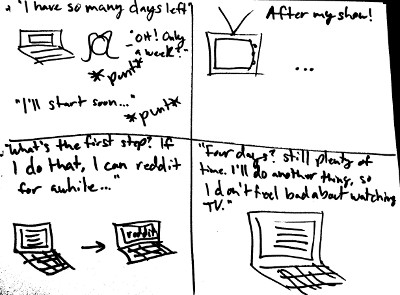 "I have so many days left"
"OH! Only
a week?"
*punt*
"I'll start soon..."
*punt*
After my show!
...
"What's the first step? If
I do that, I can reddit
for awhile..."
reddit
"Four days? still plenty of
time. I'll do another thing, so
I don't feel bad about watching
TV."